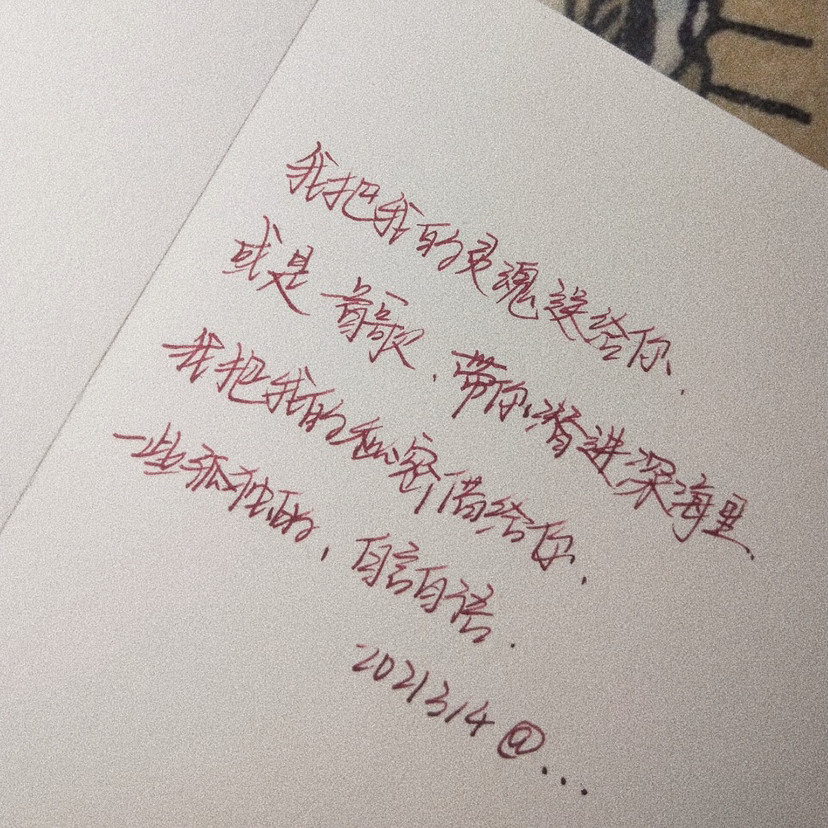 我把我的灵魂送给你.
或是首歌.带你潜进深海里.
我把我的秘密借给你.
一些孤独的,自言自语.
2021314@...